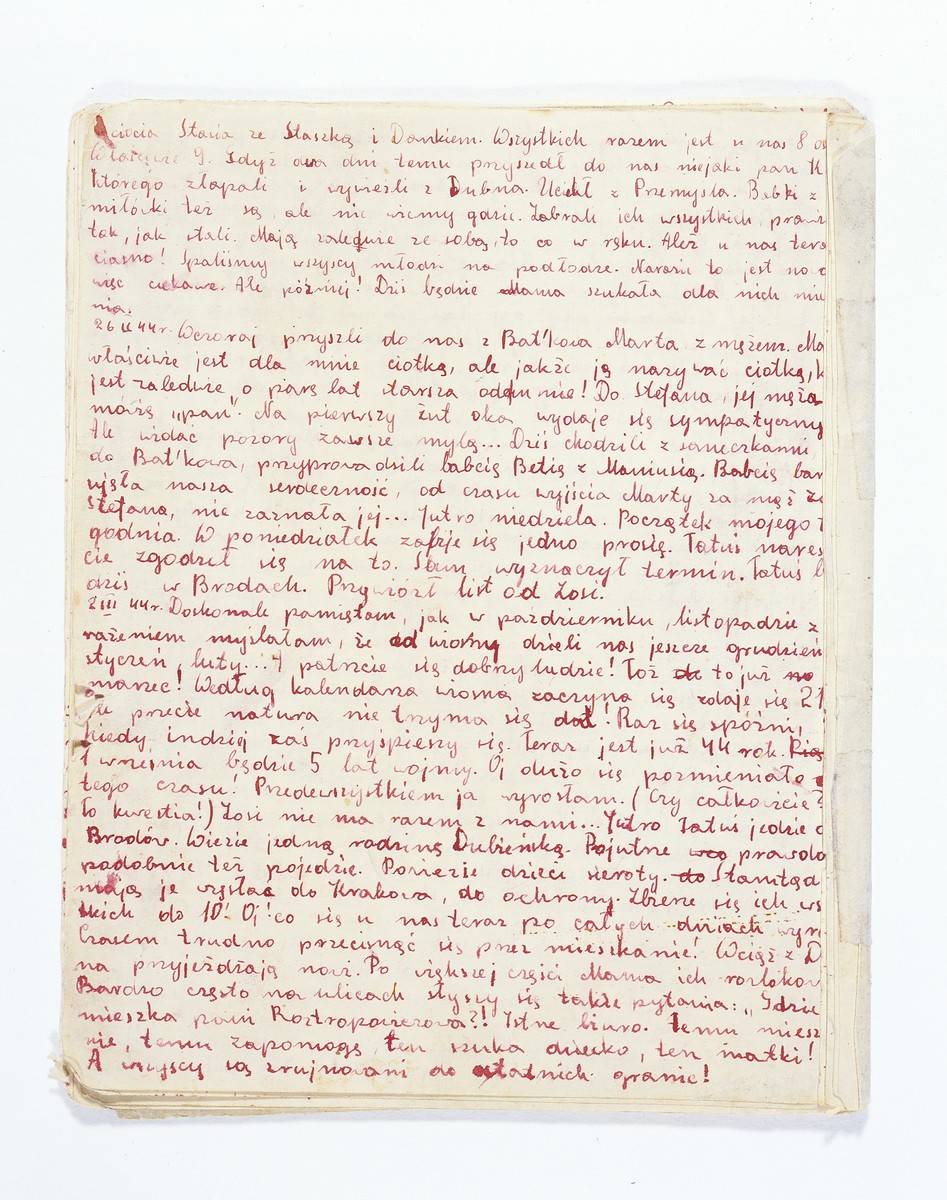 ciocia Stasia ze Staszką i Dankiem. Wszystkich razem jest u nas 8
Właściwie 9. Gdyż dwa dni temu przyszedł do nas niejaki pan K
którego złapali i wywieźli z Dubna. Uciekł z Przemyśla. Babki z
miłówki też są, ale nie wiemy gdzie. Zabrali ich wszystkich, prawie
tak, jak stali. Mają zaledwie ze sobą, to co w ręku. Ależ u nas tera
ciasno! Spaliśmy wszyscy młodzi na podłodze. Narazie to jest no
więc ciekawe. Ale później! Dziś będzie Mama szukała dla nich mie
nia.
26 II 44 r. Wczoraj przyszli do nas z Bat'kowa Marta z mężem. Ma
właściwie jest dla mnie ciotką, ale jakże ją nazywać ciotką, k
jest zaledwie o parę lat starsza odemnie! Do Stefana, jej męża
mówię „pan". Na pierwszy żut oka wydaje się sympatyczny
Ale widać pozory zawsze mylą... Dziś chodzili z saneczkami,
do Bat'kowa, przyprowadzili babcię Betię z Maniusią. Babcię bar
ujęła nasza serdeczność, od czasu wyjścia Marty za mąż za
Stefana, nie zaznała jej... Jutro niedziela. Początek mojego t
godnia. W poniedziałek zabije się jedno prosię. Tatuś nares
cie zgodził się na to. Sam wyznaczył termin. Tatuś b
dziś w Brodach. Przywiózł list od Zosi.
2 III 44 r. Doskonale pamiętam, jak w październiku, listopadzie z
rażeniem myślałam, że od wiosny dzieli nas jeszcze grudzień
styczeń, luty... A patrzcie się dobrzy ludzie! Toż to już
marzec! Według kalendarza wiosna zaczyna się zdaje się 21
ale przecie natura nie trzyma się dat! Raz się spóźni,
kiedy indziej zaś przyśpieszy się. Teraz jest już 44 rok.
1 września będzie 5 lat wojny. Oj dużo się pozmieniało
tego czasu! Przedewszystkiem ja wyrosłam. (Czy całkowicie?
to kwestia!) Zosi nie ma razem z nami... Jutro Tatuś jedzie d
Brodów. Wiezie jedną rodzinę Dubieńską. Pojutrze prawdo
podobnie też pojedzie. Powiezie dzieci sieroty. Stamtąd
mają je wysłać do Krakowa, do ochrony. Zbierze się ich ws
tkich do 10! Oj! co się u nas teraz po całych dniach wyr
Czasem trudno przecisnąć się przez mieszkanie! Wciąż z D
na przyjeżdżają nowi. Po większej części Mama ich rozlokow
Bardzo często na ulicach słyszy się takie pytania: „Gdzie
mieszka pani Roztropowiczowa?! Istne biuro. Temu miesz
nie, temu zapomogę, ten szuka dziecko, ten matki!
A wszyscy są zrujnowani do ostatnich granic!